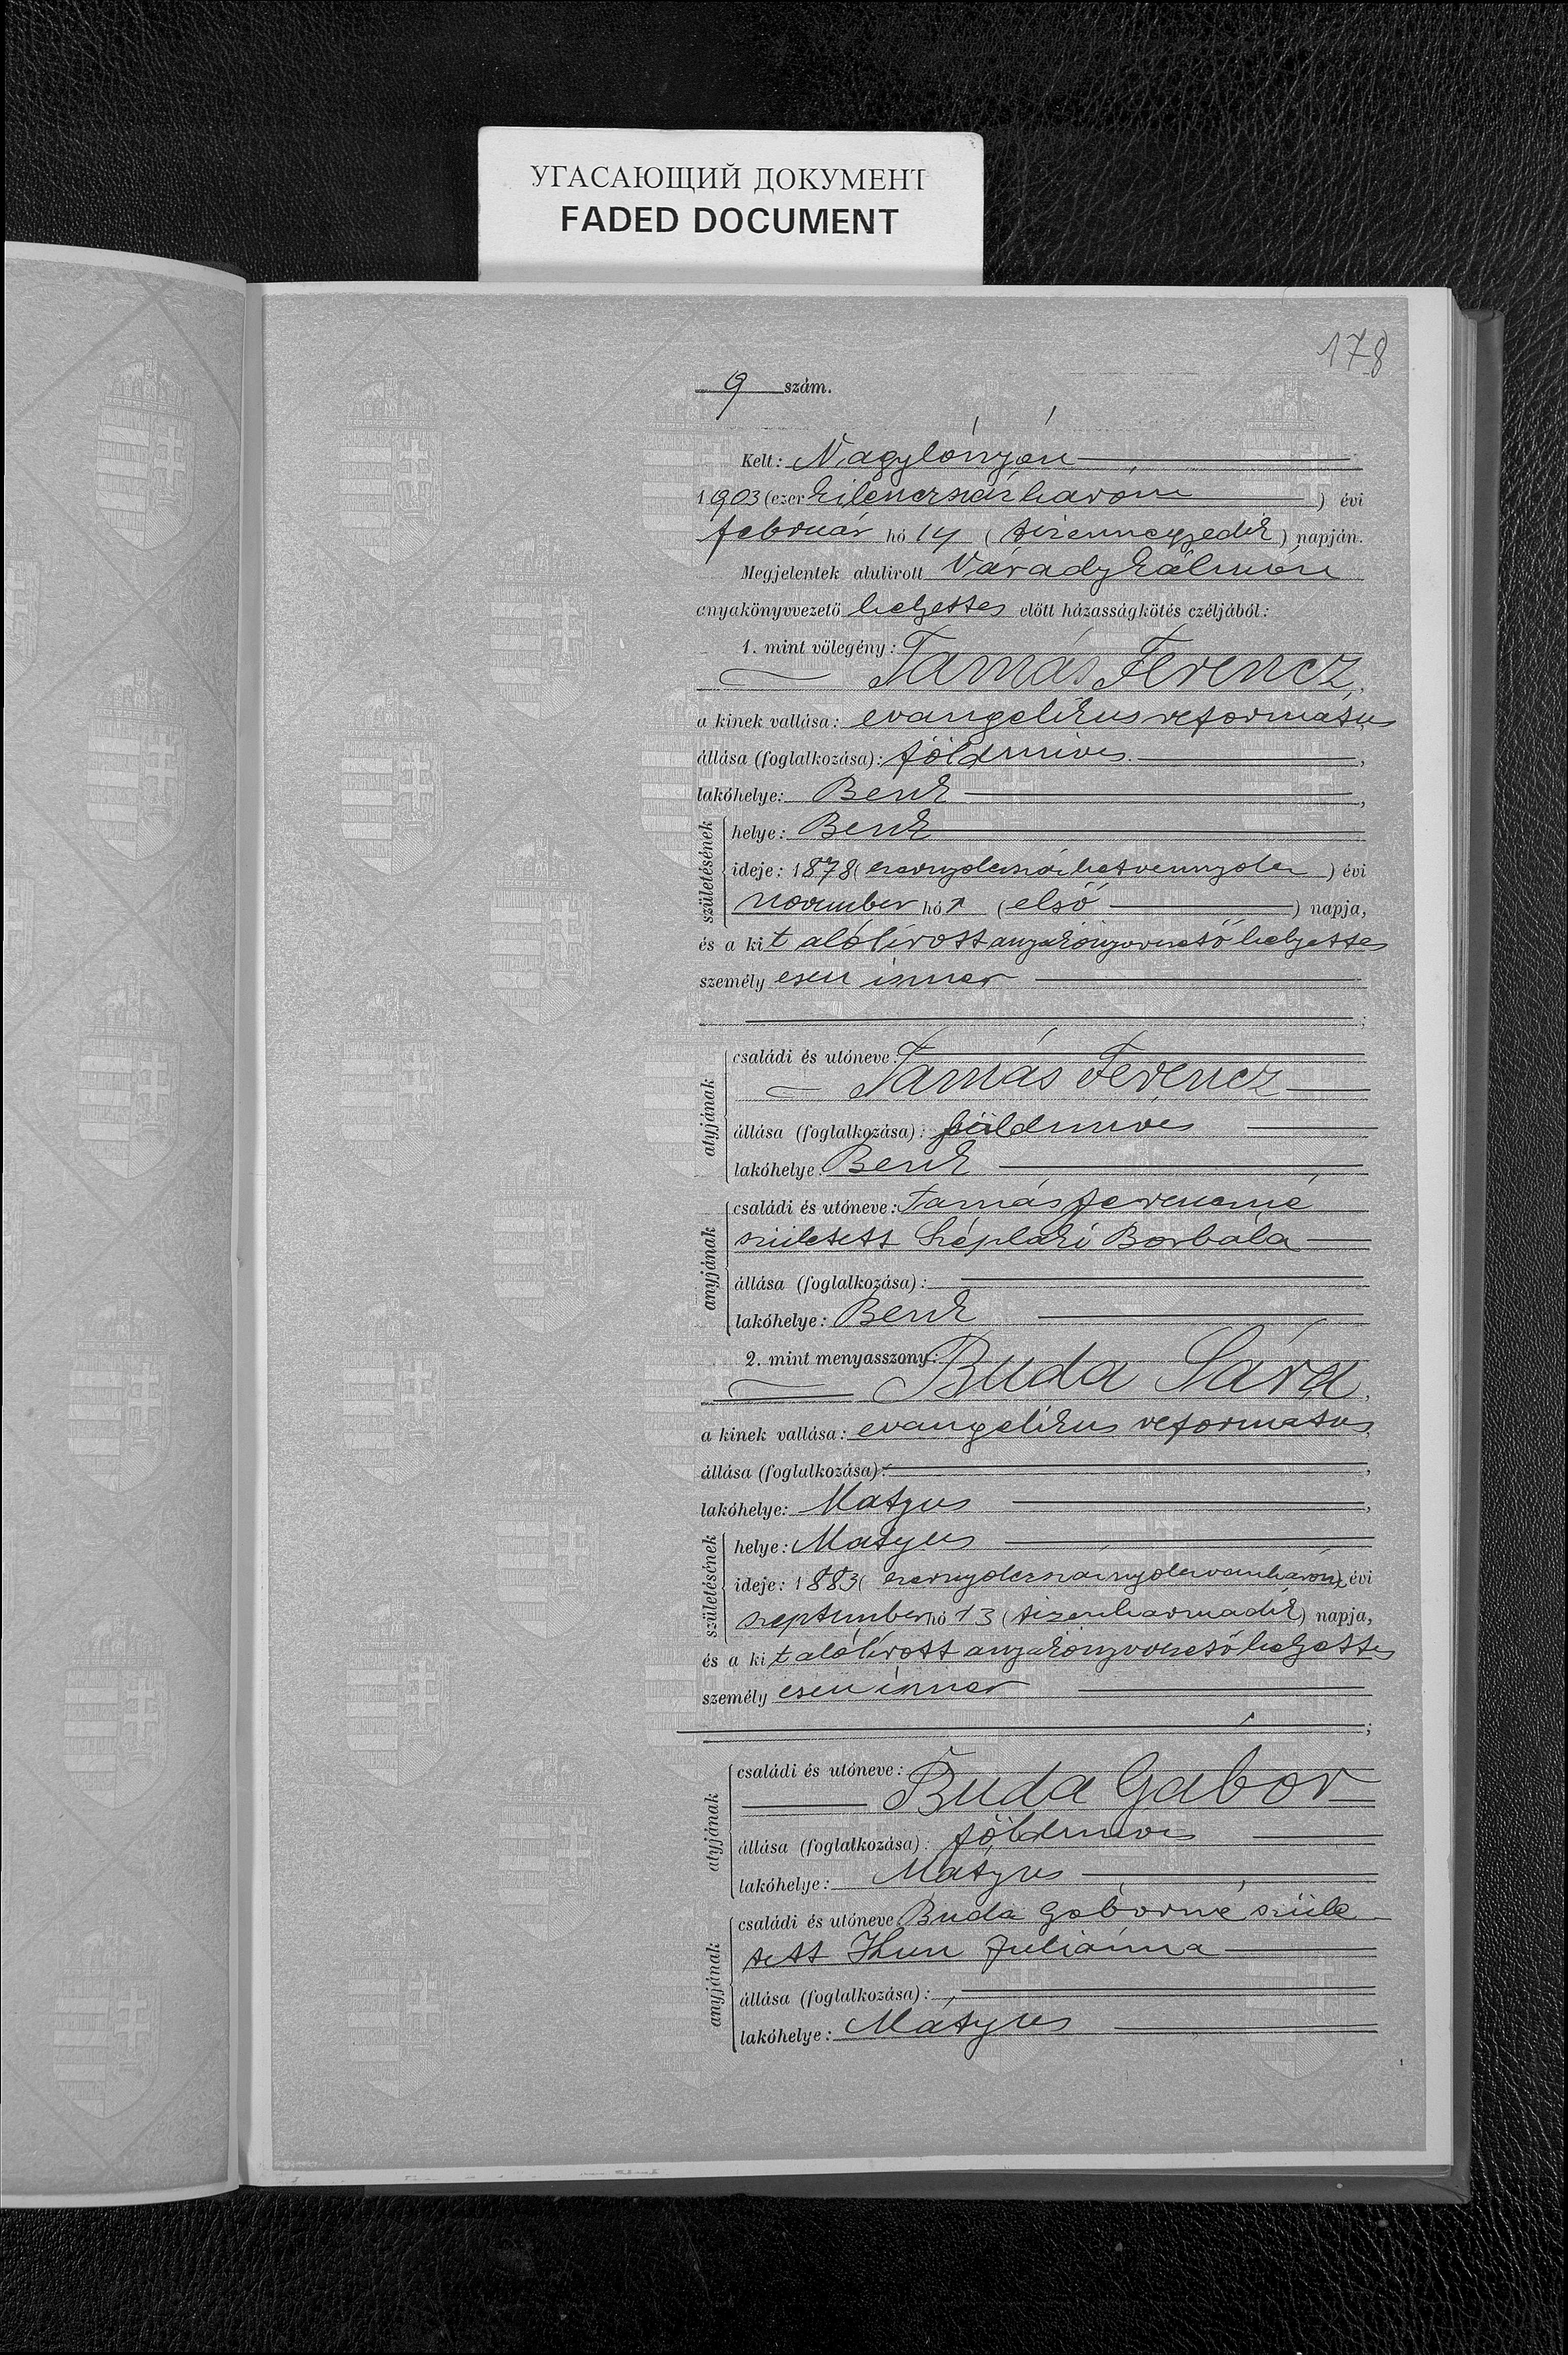 УГАСАЮЩИЙ ДОКУМЕНТ
FADED DOCUMENT
178
9 szám.
Kelt: Nagylónyán
1903 (ezer kilenczszázhárom) évi
február hó 14 (tizennegyedik) napján.
Megjelentek alulirott Várady Kálmán
anyakönyvvezető helyettes előtt házasságkötés czéljából:
1. mint vőlegény:
Tamás Ferencz,
a kinek vallása: evangelikus református,
állása (foglalkozása): földmives,
lakóhelye: Benk,
születésének
helye: Benk
ideje: 1878 (ezernyolczszázhetvennyolcz) évi
november hó 1 (első) napja,
és a kit alólirott anyakönyvvezető helyettes
személyesen ismer
;
atyjának
családi és utóneve:
Tamás Ferencz
állása (foglalkozása): földmives
lakóhelye: Benk
anyjának
családi és utóneve: Tamás Ferenczné
született Széplaki Borbála
állása (foglalkozása):
lakóhelye: Benk
2. mint menyasszony:
Buda Sára,
a kinek vallása: evangelikus református,
állása (foglalkozása):,
lakóhelye: Matyus,
születésének
helye: Matyus
ideje: 1883 (ezernyolczszáznyolczvanhárom) évi
szeptember hó 13 (tizenharmadik) napja,
és a kit alólirott anyakönyvvezető helyettes
személyesen ismer
;
atyjának
családi és utóneve:
Buda Gábor
állása (foglalkozása): földmives
lakóhelye: Mátyus
anyjának
családi és utóneve: Buda Gáborné szüle
tett Thun Juliánna
állása (foglalkozása):
lakóhelye: Mátyus